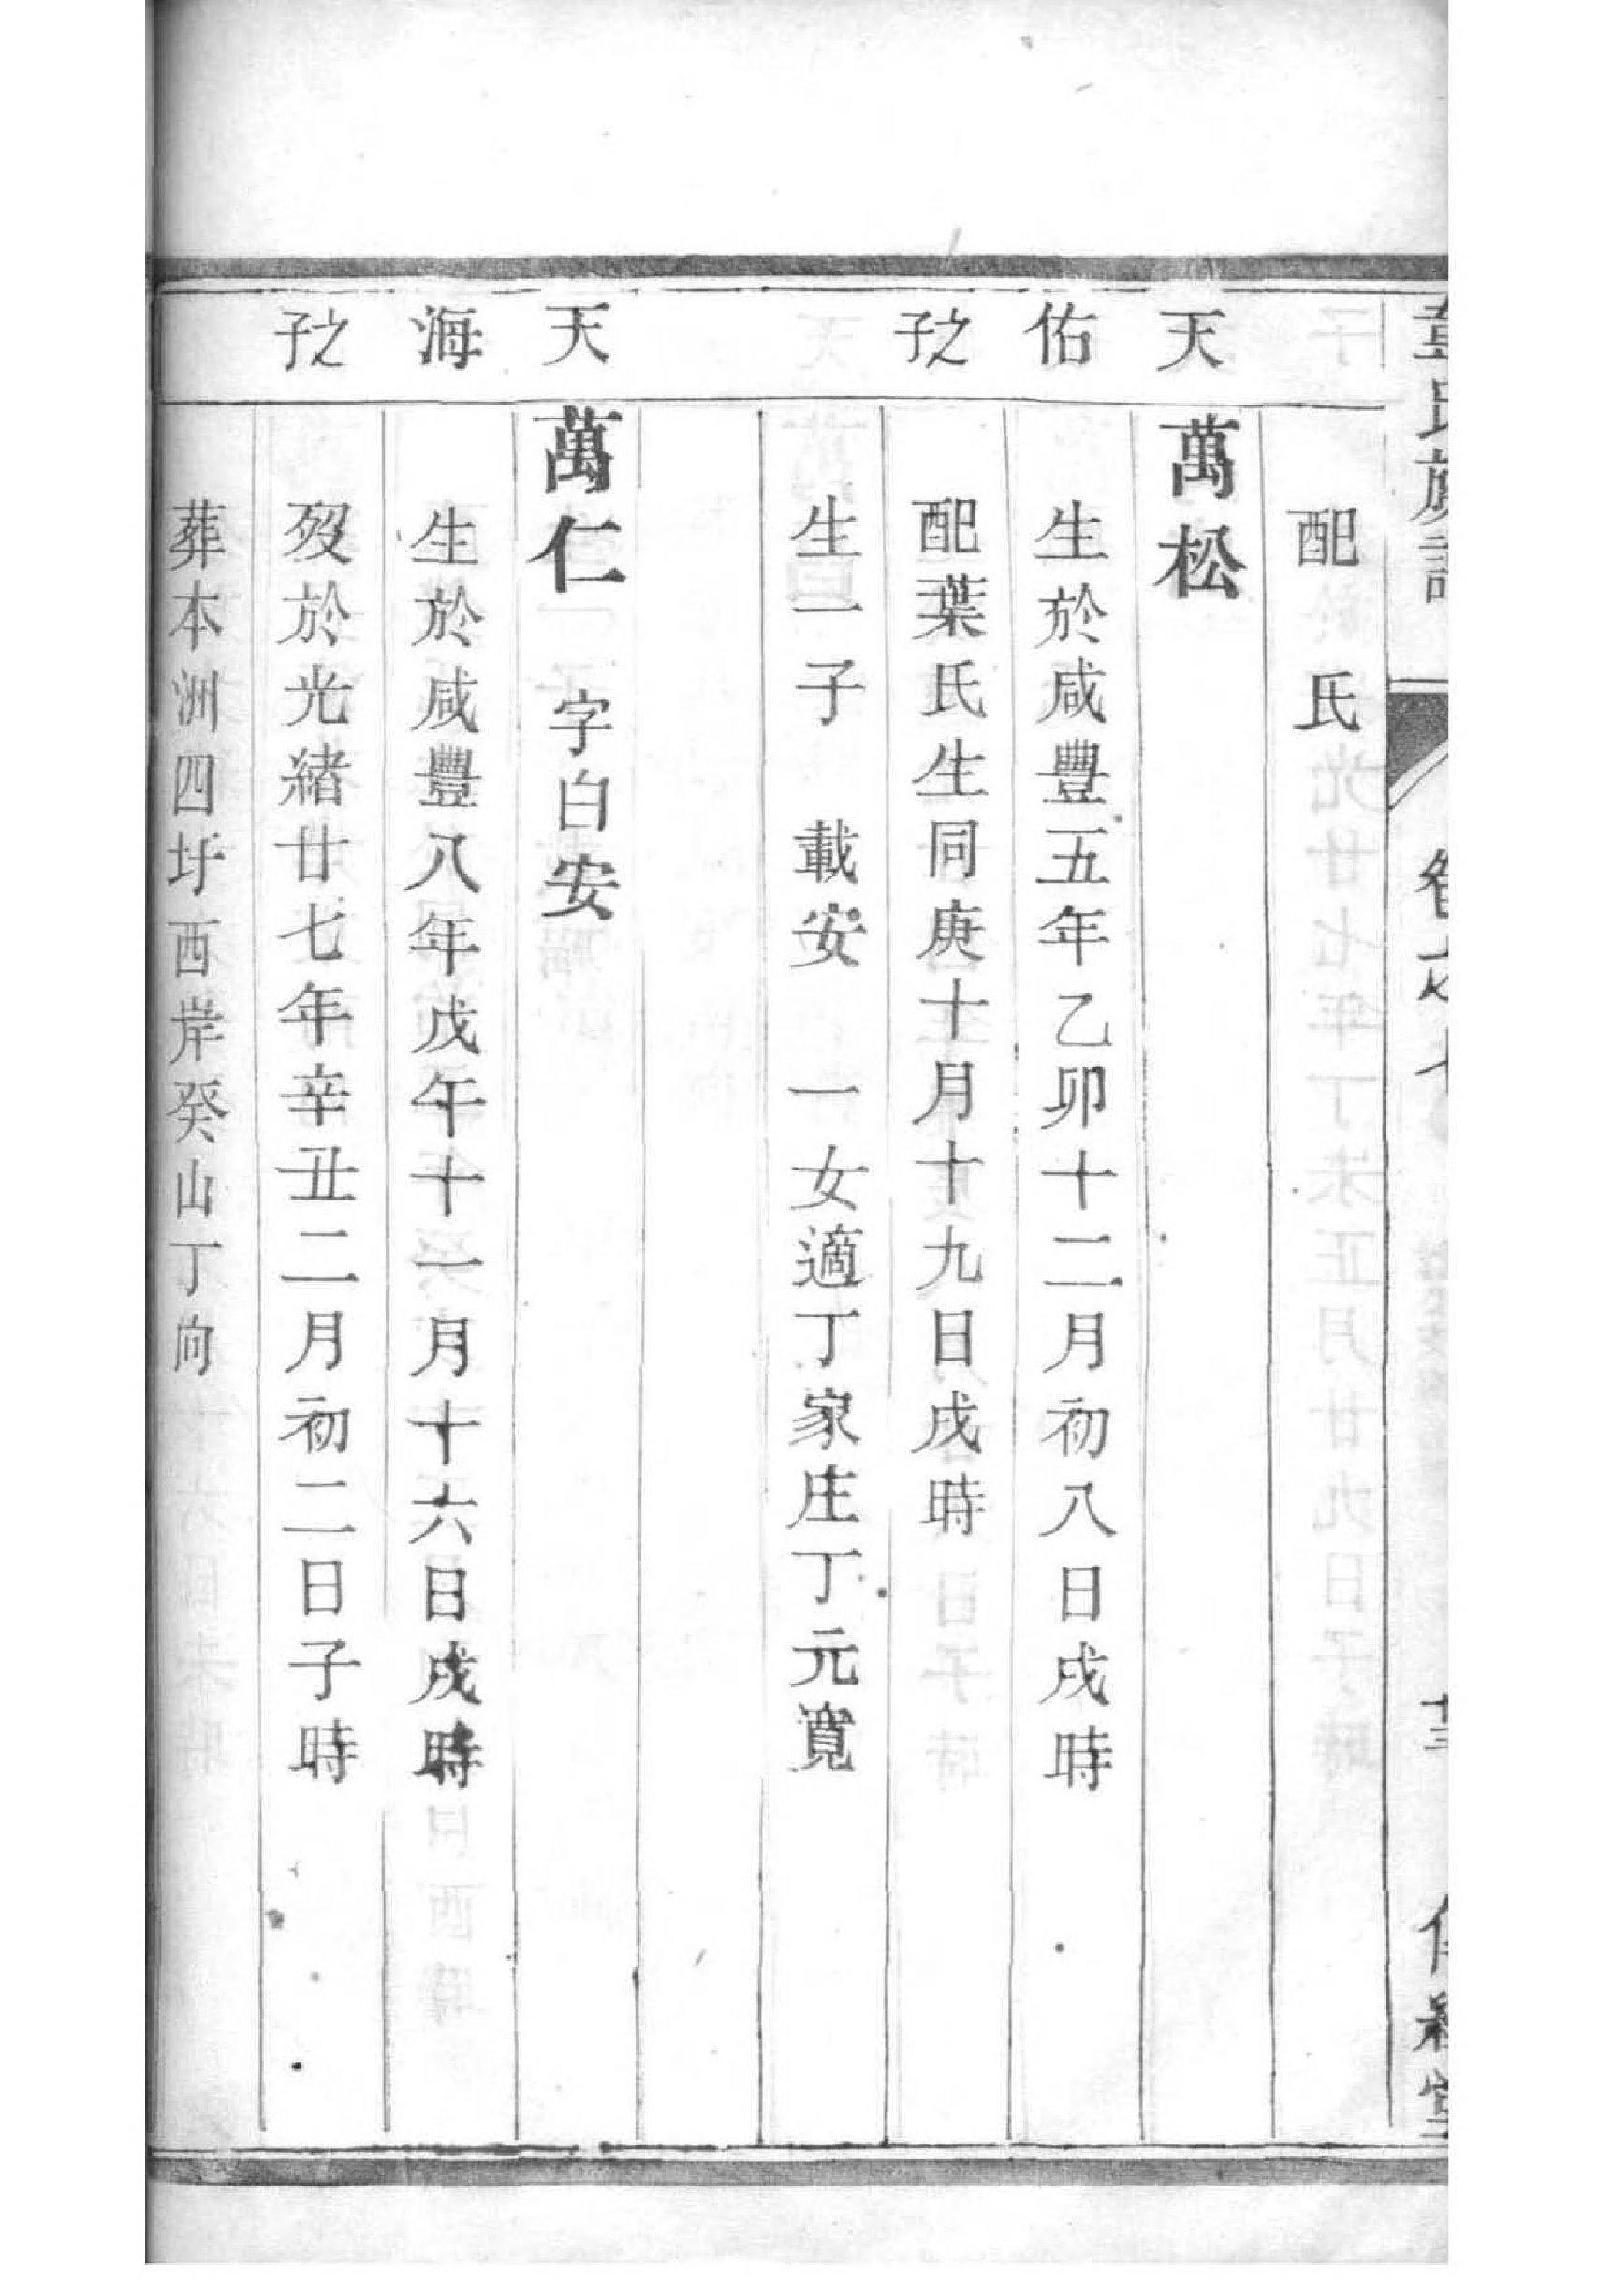 配　氏
天　萬松
佑　生於咸豐五年乙卯十二月初八日戌時
之子　配葉氏生同庚十月十九日戌時
生一子　載安　一女適丁家庄丁元寬
天　萬仁　字白安
海　生於咸豐八年戊午十一月十六日戌時
之子　歿於光緒廿七年辛丑二月初二日子時
葬本洲四圩西岸癸山丁向